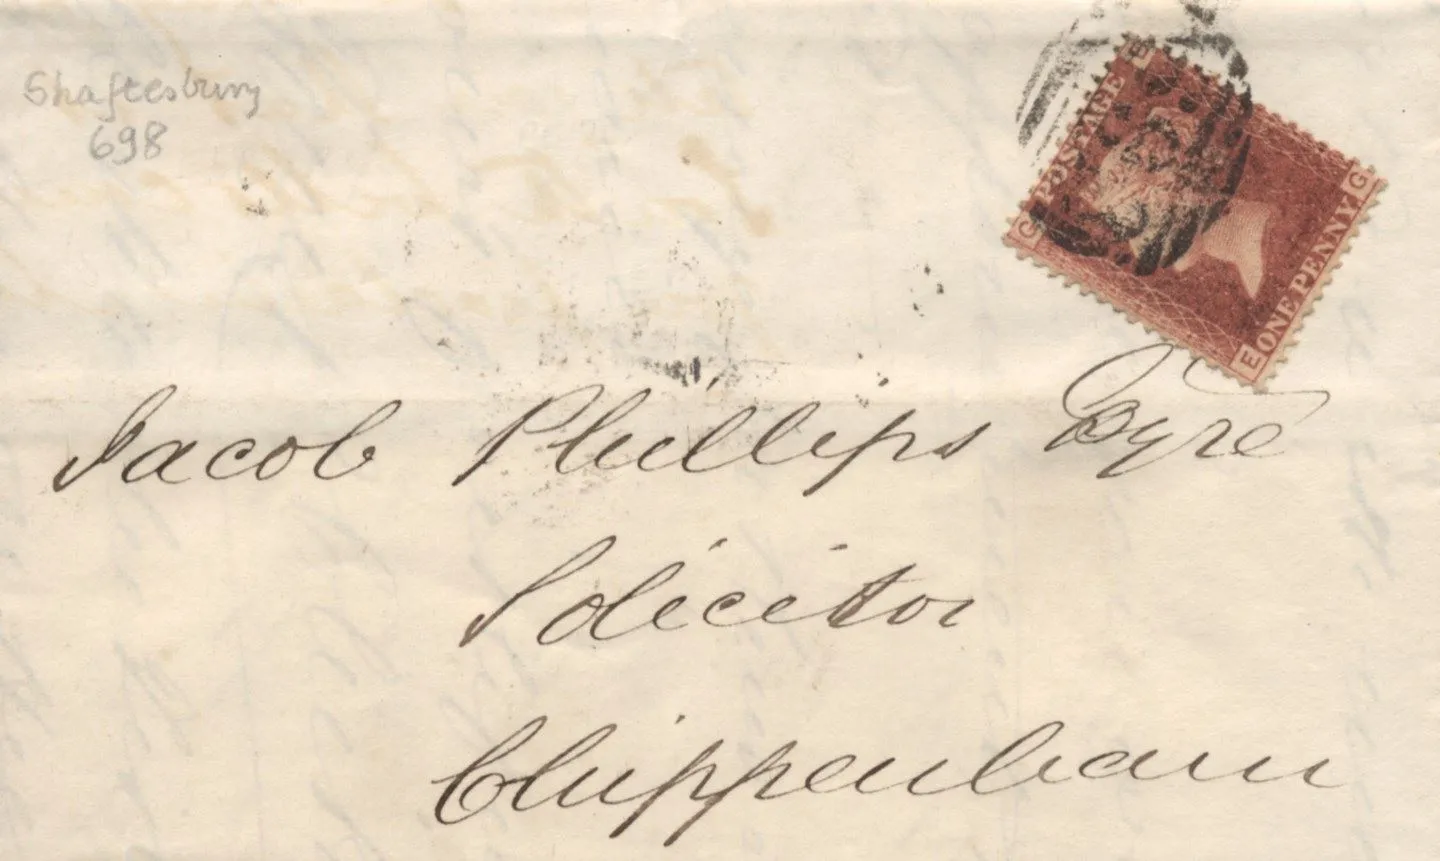 Shaftesbury
698
G POSTAGE E
E ONE PENNY G
Jacob Phillips Esqre
Solicitor
Chippenham